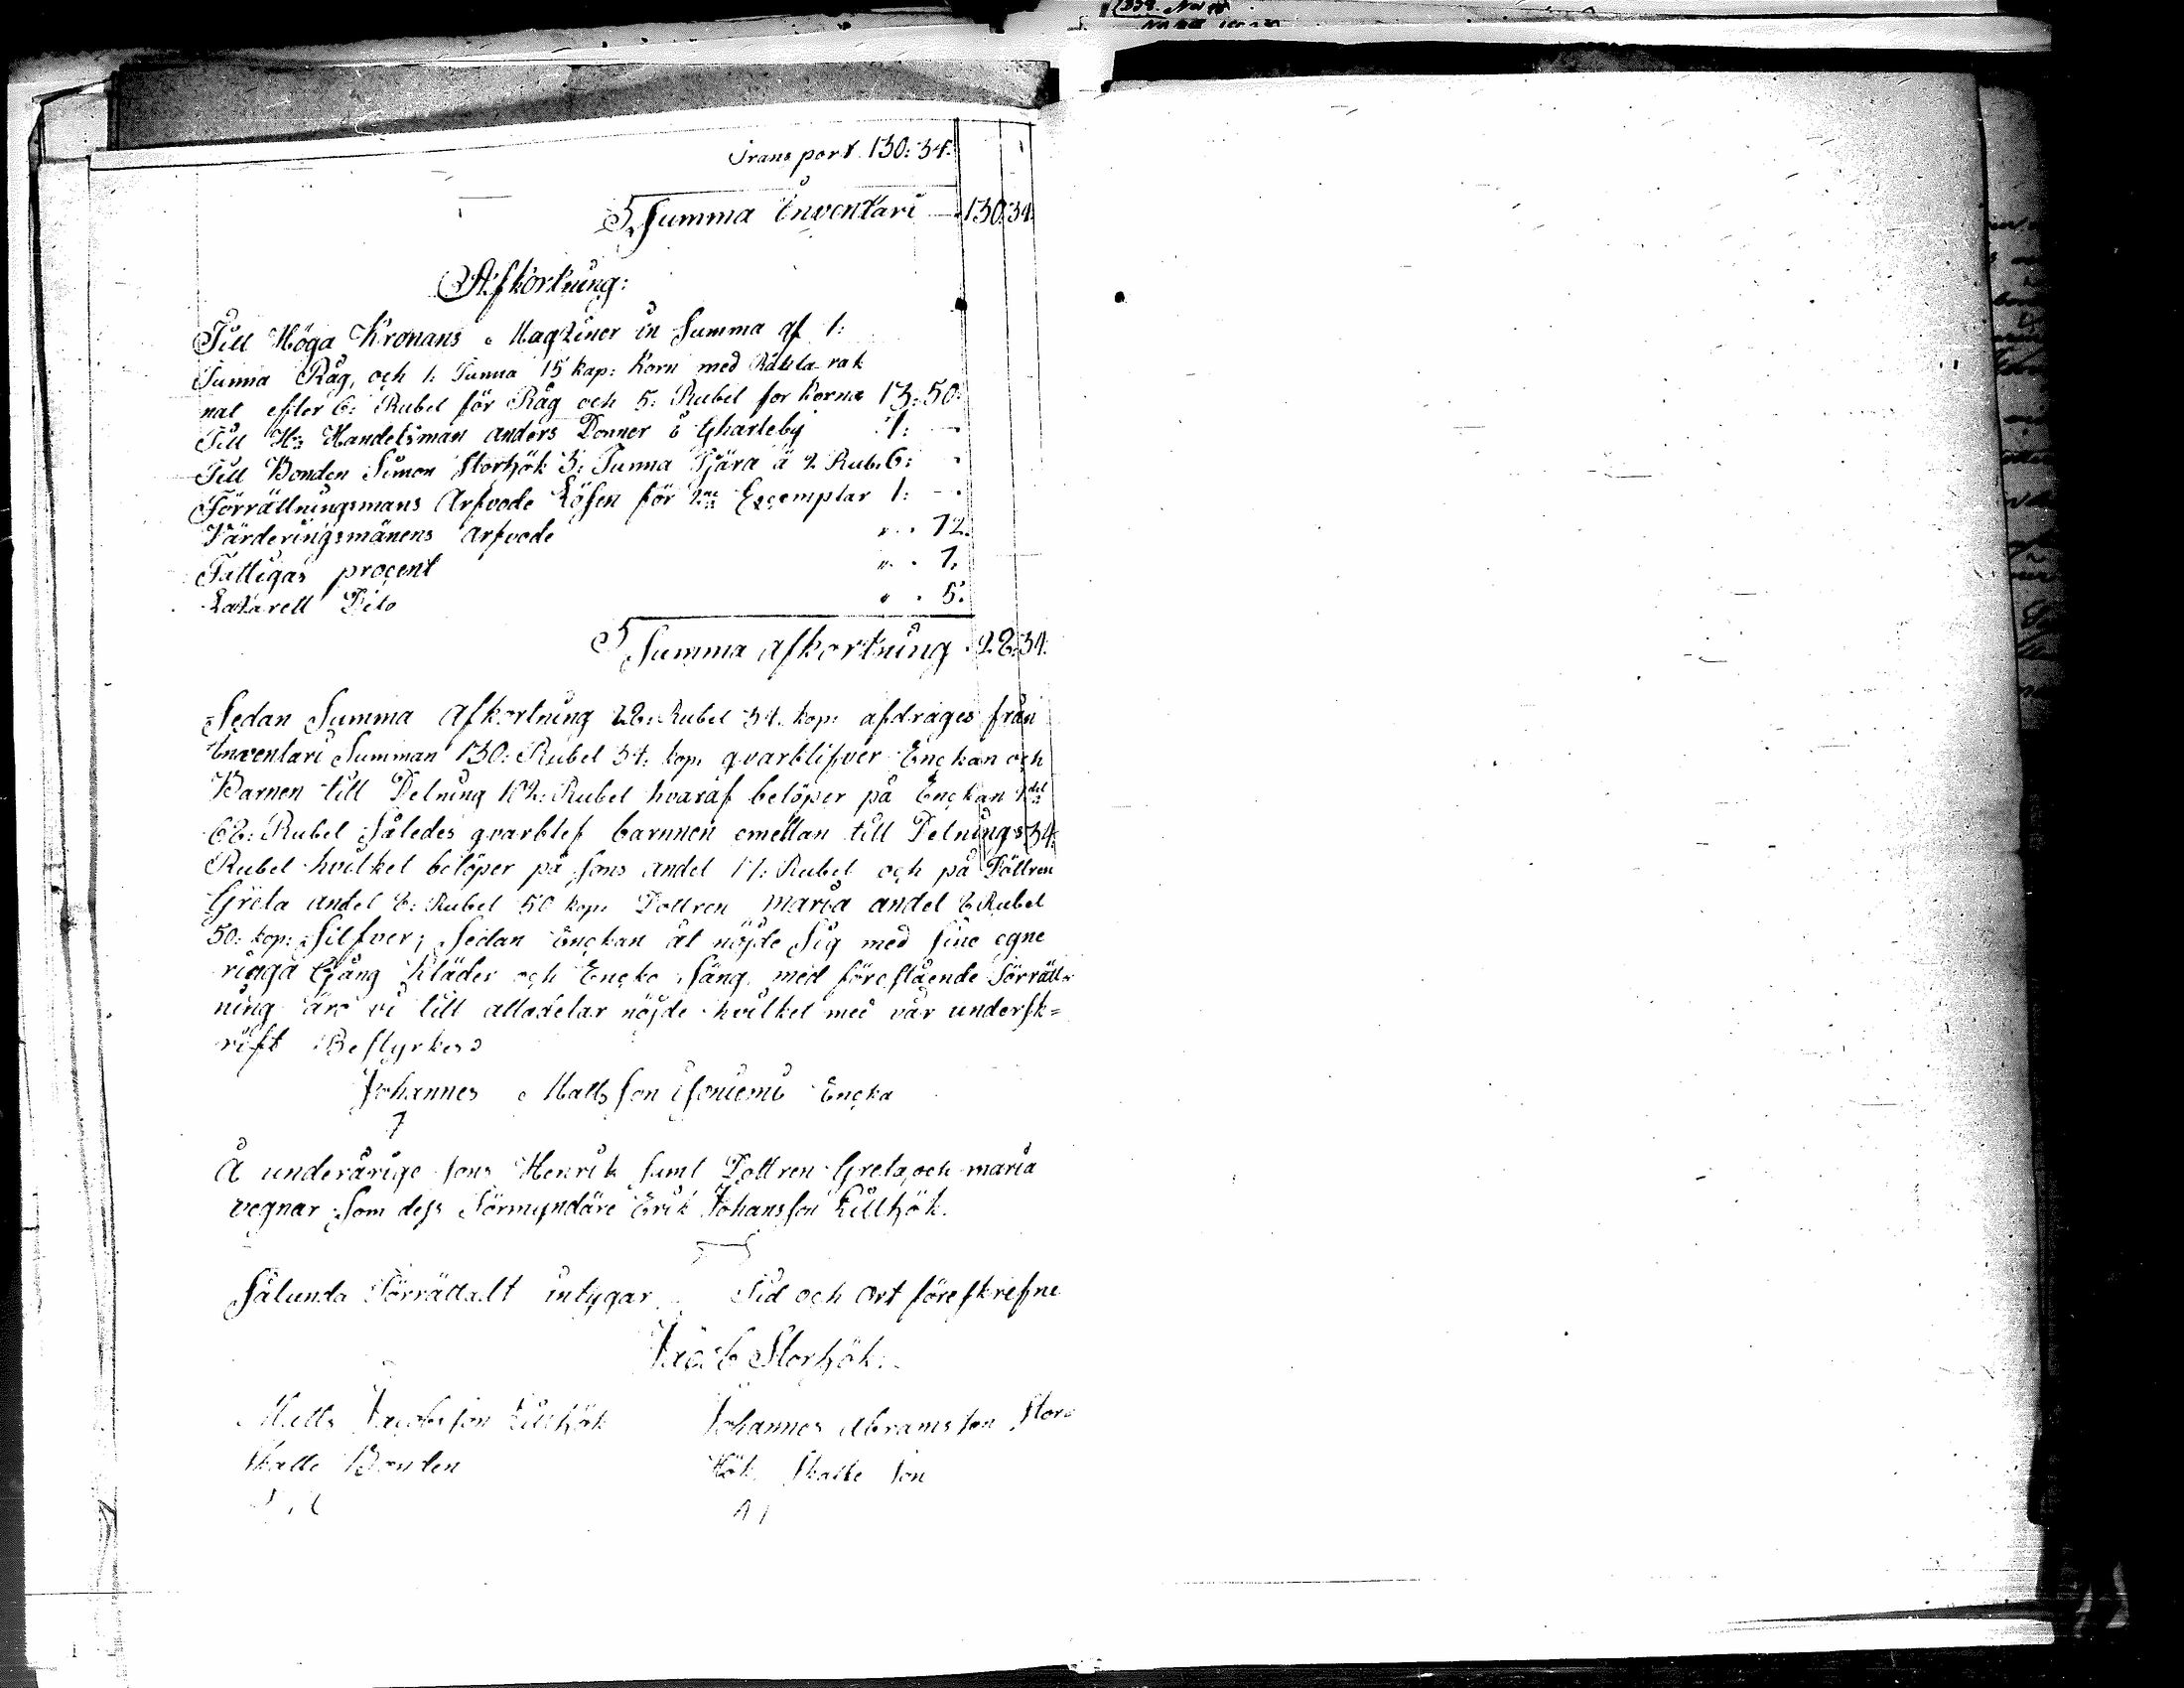 Transport 130: 34.
Summa Inventari 130:34.
Afkortning:
Till Höga Kronans Magziner in Summa af 1:
Tunna Råg, och 1: Tunna 15 kap: Korn med Räkta rak
nat efter 6: Rubel för Råg och 5: Rubel for korna 13:50:
Till Hr Handelsman anders Donner i Gkarleby 1: -
Till Bonden Simon Storhök 3: Tunna Tjära á 2 Rub: 6: -
Förrättningsmans Arfvode Lösen för 2ne Exemplar 1: -
Värderingsmänens arfvode " . 72.
Fattigas procent " . 7.
Lazarett Dito " . 5.
Summa afkortning 28:34.
Sedan Summa Afkortning 28: Rubel 34. kop: afdrages från
Inventari Summan 130: Rubel 34: kop: qvarblifver Enckan och
Barnen till Delning 102: Rubel hvaraf belöper på Enckan
68: Rubel Således qvarblef barnnen emellan till Delnings 34:
Rubel hvilket belöper på sons andel 17: Rubel och på Dottren
Greta andel 8: Rubel 50 kop: Dottren maria andel 8 Rubel
50: kop: Silfver; Sedan Enckan åt nöjde Sig med sine egne
ringa Gång Kläder och Encke säng. med föreslående Förrätt=
ning äro vi till alladelar nöjde hvilket med vår undersk=
rift Bestyrkes
Johannes Matts son isoniemi Encka
Å underårige sons Henrik samt Dottren Greta, och maria
vegnar som dess Förmyndare Erik Johansson Lillhök.
Sålunda Förrättalt intygar Tid och Ort föreskrefne
Jacob Storhök.
Matts Jacobsson Lillhök Johannes Abrams son Stor=
Skatte Bonden Hök Skatte son